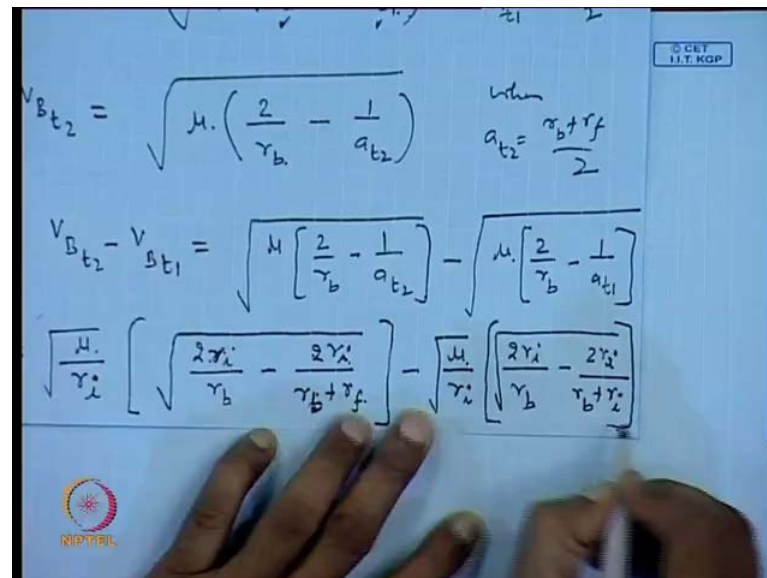 t1 2
© CET
I.I.T. KGP
V_{Bt_2} = \sqrt{μ. ( \frac{2}{r_b.} - \frac{1}{a_{t2}} )} when
a_{t2} = \frac{r_b + r_f}{2}
V_{Bt_2} - V_{Bt_1} = \sqrt{μ [ \frac{2}{r_b} - \frac{1}{a_{t2}} ]} - \sqrt{μ. [ \frac{2}{r_b} - \frac{1}{a_{t1}} ]}
\sqrt{\frac{μ.}{r_i}} [ \sqrt{\frac{2r_i}{r_b} - \frac{2r_i}{r_b + r_f.}} ] - \sqrt{\frac{μ.}{r_i}} [ \sqrt{\frac{2r_i}{r_b} - \frac{2r_i}{r_b + r_i}} ]
NPTEL